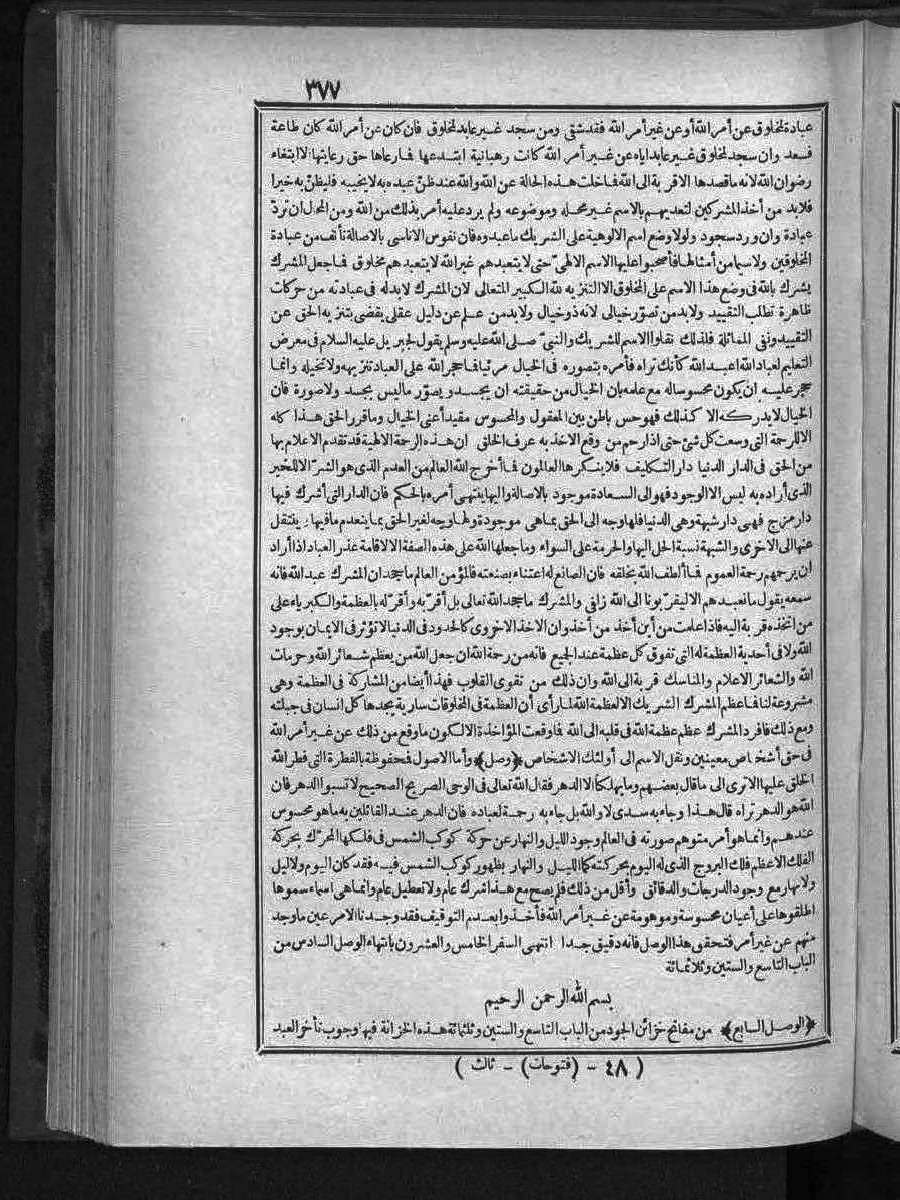 ٣٧٧
عبادة لمخلوق عن أمر الله أو عن غير أمر الله فقد شقى ومن سجد غير عابد لمخلوق فان كان عن أمر الله كان طاعة
فسعد وان سجد لمخلوق غير عابد اياه عن غير أمر الله كانت رهبانية ابتدعها فارعاها حق رعايتها الا ابتغاء
رضوان الله لانه ماقصدها الا قربة الى الله فاخلت هذه الحالة عن الله والله عند ظن عبده به لا يخيبه فليظن به خيرا
فلابد من أخذ المشركين لتعديهم بالاسم غير محله وموضوعه ولم يرد عليه أمر بذلك من الله ومن المحال ان ترد
عبادة وان ورد سجود ولولا وضع اسم الالوهية على الشريك ماعبدوه فان نفوس الاناسى بالاصالة تأنف من عبادة
المخلوقين ولاسيما من أمثالها فأصحبوا عليها الاسم الالهى حتى لا يتعبدهم غير الله لا يتعبدهم مخلوق فاجعل المشرك
يشرك بالله فى وضع هذا الاسم على المخلوق الا التنزيه لله الكبير المتعالى لان المشرك لابد له فى عبادته من حركات
ظاهرة تطلب التقييد ولابد من تصوّر خيالى لانه ذو خيال ولابد من علم عن دليل عقلى يقضى بتنزيه الحق عن
التقييد ونفى المماثلة فلذلك نقلوا الاسم للشريك والنبى صلى الله عليه وسلم يقول لجبريل عليه السلام فى معرض
التعليم لعباد الله اعبد الله كأنك تراه فأمره بتصوره فى الخيال مرئيا فاحجر الله على العباد تنزيهه ولا تخيله وانما
حجر عليه ان يكون محسوسا له مع علمه بان الخيال من حقيقته ان يجسد ويصوّر ماليس بجسد ولا صورة فان
الخيال لا يدركه الا كذلك فهو حس باطن بين المعقول والمحسوس مقيد أعنى الخيال وماقرر الحق هذا كله
الا للرحمة التى وسعت كل شئ حتى اذا رحم من وقع الاخذ به عرف الخلق ان هذه الرحة الالهية قد تقدم الاعلام بها
من الحق فى الدار الدنيا دار التكليف فلا ينكرها العالمون فأخرج الله العالم من العدم الذى هو الشر الا للخير
الذى أراده به ليس الا الوجود فهو الى السعادة موجود بالاصالة واليها ينتهى أمره بالحكم فان الدار التى أشرك فيها
دار مزج فهى دار شبهة وهى الدنيا فلها وجه الى الحق بما هى موجودة ولها وجه لغير الحق بما ينعدم مافيها وينتقل
عنها الى الاخرى والشبهة نسبة الحل اليها والحرمة على السواء وماجعلها الله على هذه الصفة الا لاقامة عذر العباد اذا أراد
ان يرحمهم رحمة العموم فاألطف الله بخلقه فان الصانع له اعتناء بصنعته فالمؤمن العالم ماجحد ان المشرك عبد الله فانه
سمعه يقول مانعبدهم الا ليقرّبونا الى الله زلفى والمشرك ماجحد الله تعالى بل أقرّ به وأقرّ له بالعظمة والكبرياء على
من اتخذه قربة اليه فاذا علمت من أين أخذ من أخذ وان الاخذ الاخروى كالحدود فى الدنيا لا تؤثر فى الايمان بوجود
الله ولا فى أحدية العظمة له التى تفوق كل عظمة عند الجميع فانه من رحمة الله ان جعل الله من يعظم شعائر الله وحرمات
الله والشعائر الاعلام والمناسك قربة الى الله وان ذلك من تقوى القلوب فهذا أيضا من المشاركة فى العظمة وهى
مشروعة لنا فاعظم المشرك الشريك الا لعظمة الله لما رأى أن العظمة فى المخلوقات سارية يجدها كل انسان فى جبلته
ومع ذلك فافرد المشرك عظم عظمة الله فى قلبه الى الله فاوقعت المؤاخذة الا لكون ماوقع من ذلك عن غير أمر الله
فى حق أشخاص معينين ونقل الاسم الى أولئك الاشخاص ﴿وصل﴾ وأما الاصول فحفوظة بالفطرة التى فطر الله
الخلق عليها الاترى الى ماقال بعضهم ومايهلكنا الا الدهر فقال الله تعالى فى الوحى الصريح الصحيح لاتسبوا الدهر فان
الله هو الدهر تراه قال هذا وجاء به سدى لا والله بل جاء به رحمة لعباده فان الدهر عند القائلين به ماهو محسوس
عندهم وانما هو أمر متوهم صورته فى العالم وجود الليل والنهار عن حركة كوكب الشمس فى فلكها المحرّك بحركة
الفلك الاعظم فلك البروج الذى له اليوم بحركته كما الليل والنهار بظهور كوكب الشمس فيه فقد كان اليوم ولا ليل
ولا نهار مع وجود الدرجات والدقائق وأقل من ذلك فلم يصح مع هذا شرك عام ولا تعطيل عام وانما هى اسماء سموها
اطلقوها على أعيان محسوسة وموهومة عن غير أمر الله فأخذوا بعدم التوقيف فقد وجدنا الامر عين ماوجد
منهم عن غير أمر فتحقق هذا الوصل فانه دقيق جدا انتهى السفر الخامس والعشرون بانتهاء الوصل السادس من
الباب التاسع والستين وثلاثمائة
بسم الله الرحمن الرحيم
﴿الوصل السابع﴾ من مفاتح خزائن الجود من الباب التاسع والستين وثلثمائة هذه الخزانة فيها وجوب تأخر العبد
( ٤٨ - (فتوحات) - ثالث )